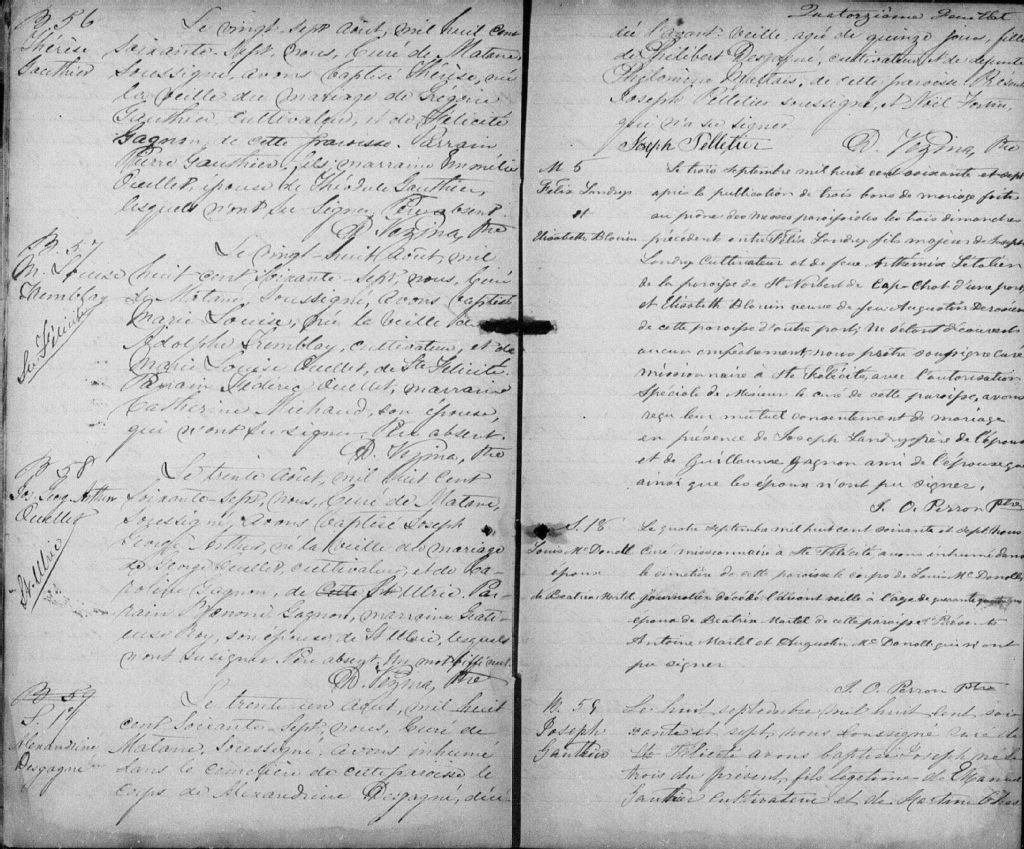 B. 56
Thérèse
Gauthier
Le vingt sept Août, mil huit cent
soixante-sept, nous, Curé de Matane,
soussigné, avons baptisé Thérèse, née
la veille du mariage de Grégoire
Gauthier, cultivateur, et de Félicité
Gagnon, de cette paroisse. Parrain
Pierre Gauthier, fils, marraine Emmélie
Ouellet, épouse de Théodule Gauthier,
lesquels n'ont su signer. Père absent.
D. Vézina, Ptre
B. 57
M. Louise
Tremblay
Ste Félicité
Le vingt-huit Août, mil
huit cent soixante-sept, nous, Curé
de Matane, soussigné, avons baptisé
Marie Louise, née la veille de
Adolphe Tremblay, cultivateur, et de
Marie Louise Ouellet, de Ste Félicité.
Parrain Ouellet, marraine
Catherine Michaud, son épouse,
qui n'ont su signer. Père absent.
D. Vézina, Ptre
B. 58
Jos. Geog. Arthur
Ouellet
St Ulric
Le trente Août, mil huit cent
soixante-sept, nous, Curé de Matane,
soussigné, avons baptisé Joseph
George Arthur, né la veille du mariage
de George Ouellet, cultivateur, et de Ca-
roline Gagnon, de cette St Ulric. Par-
rain Gagnon, marraine
Roy, son épouse, de St Ulric, lesquels
n'ont su signer. Père absent. Un mot biffé nul.
D. Vézina, Ptre
B. 59
S. 17
Alexandrine
Desgagné
Le trente-un Août, mil huit
cent soixante-sept, nous, Curé de
Matane, soussigné, avons inhumé
dans le cimetière de cette paroisse le
corps de Alexandrine Desgagné, décé-
Quatorzième Feuillet
dée l'avant-veille, agée de quinze jours, fille
de Philibert Desgagné, cultivateur et de défunte
Philomène Maltais, de cette paroisse. Présents
Joseph Pelletier soussigné, et Néil Fortin,
qui n'a su signer
Joseph Pelletier D. Vézina, Ptre
M 5
Félix Landry
et
Elisabeth Blouin
Le trois septembre mil huit cent soixante et sept
après la publication de trois bans de mariage faite
au prône des messes paroissiales les trois dimanches
précédent entre Félix Landry fils majeur de Joseph
Landry Cultivateur et de feue Arthémise Létalien
de la paroisse de St Norbert de Cap-Chat d'une part,
et Elisabeth Blouin veuve de feu Augustin
de cette paroisse d'autre part; Ne s'étant découvert
aucun empêchement nous prêtre soussigné curé
missionnaire à Ste Félicité, avec l'autorisation
spéciale de Mesieur le curé de cette paroisse, avons
reçu leur mutuel consentement de mariage
en présence de Joseph Landry père de l'époux
et de Guillaume Gagnon ami de l'épouse qui
ainsi que les époux n'ont pu signer.
J. O. Perron Ptre
S. 18
Louis McDonell
époux
de Béatrix Martel
Le quatre septembre mil huit cent soixante et sept nous
curé missionnaire à Ste Félicité, avons inhumé dans
le cimetière de cette paroisse le corps de Louis McDonell
journalier décédé l'avant veille à l'age de quarante quatre ans
époux de Béatrix Martel de cette paroisse. Présents
Antoine Martel et Augustin McDonell qui n'ont
pu signer
J. O. Perron Ptre
B. 59
Joseph
Gauthier
Le huit septembre mil huit cent soi-
xante et sept nous soussigné curé de
Ste Félicité avons baptisé Joseph né le
trois du présent, fils légitime de
Gauthier cultivateur et de